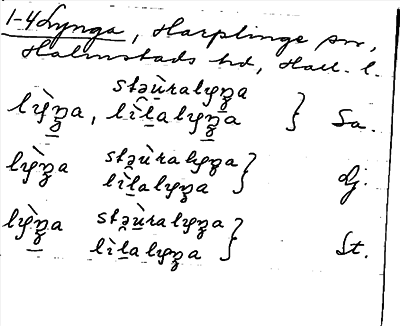 1-4 Lynga, Harplinge sn,
Halmstads hd, Hall. l.
stəu̠ràlyŋa
lỳŋa, lìlalyŋa } Sa.
lỳŋa stəu̠ràlyŋa
lìlalyŋa } Dj.
lỳŋa stəu̠ràlyŋa
lìlalyŋa } St.